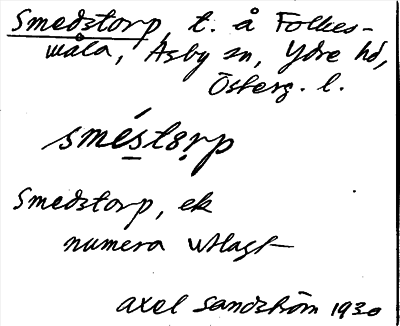 Smedstorp, t. å Folkes-
wåla, Asby sn, Ydre hd,
Österg. l.
sméstọrp
Smedstorp, ek
numera utlagt
Axel Sandström 1930